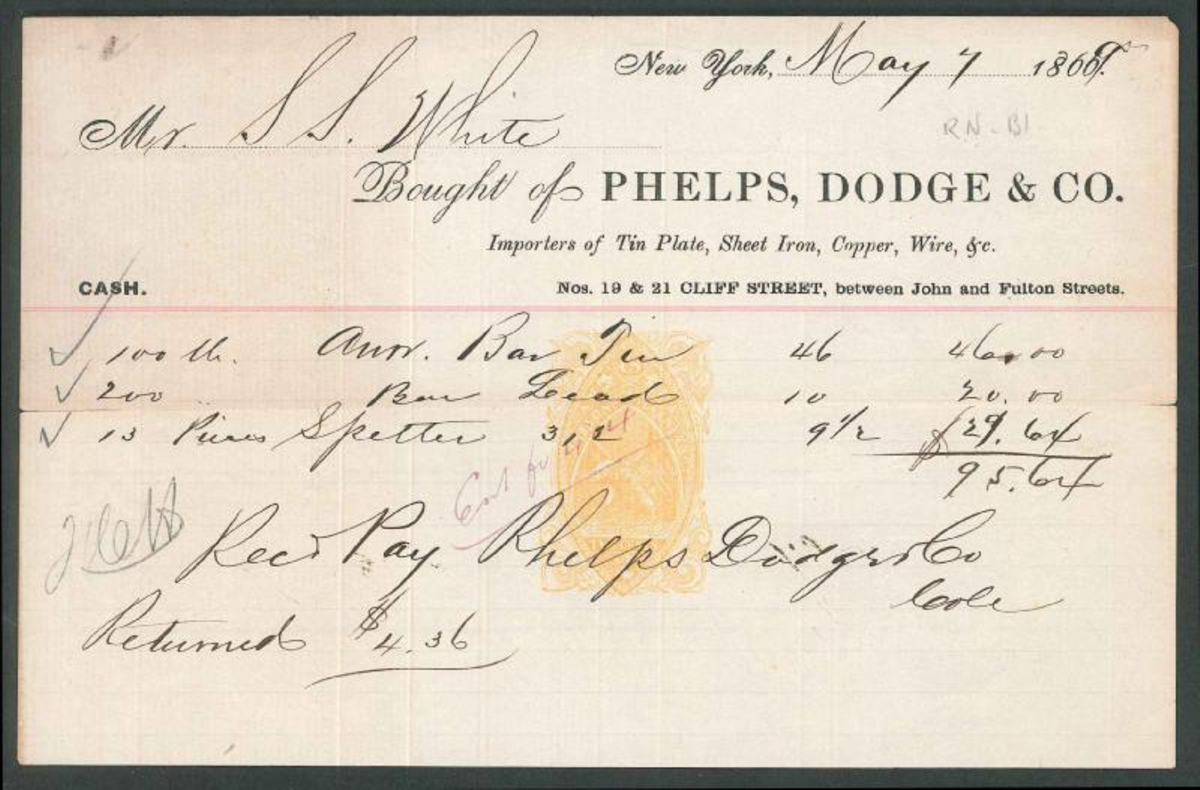 New York, May 7 1866
RN-B1
Mr. S S. White
Bought of PHELPS, DODGE & CO.
Importers of Tin Plate, Sheet Iron, Copper, Wire, &c.
CASH.
Nos. 19 & 21 CLIFF STREET, between John and Fulton Streets.
100 lb. Bar Tin 46 46.00
200 Bar Lead 10 20.00
13 Pieces Spelter 312 9 1/2 $29.64
95.64
Rec'd Pay. Phelps Dodge & Co
Cole
Returned $4.36